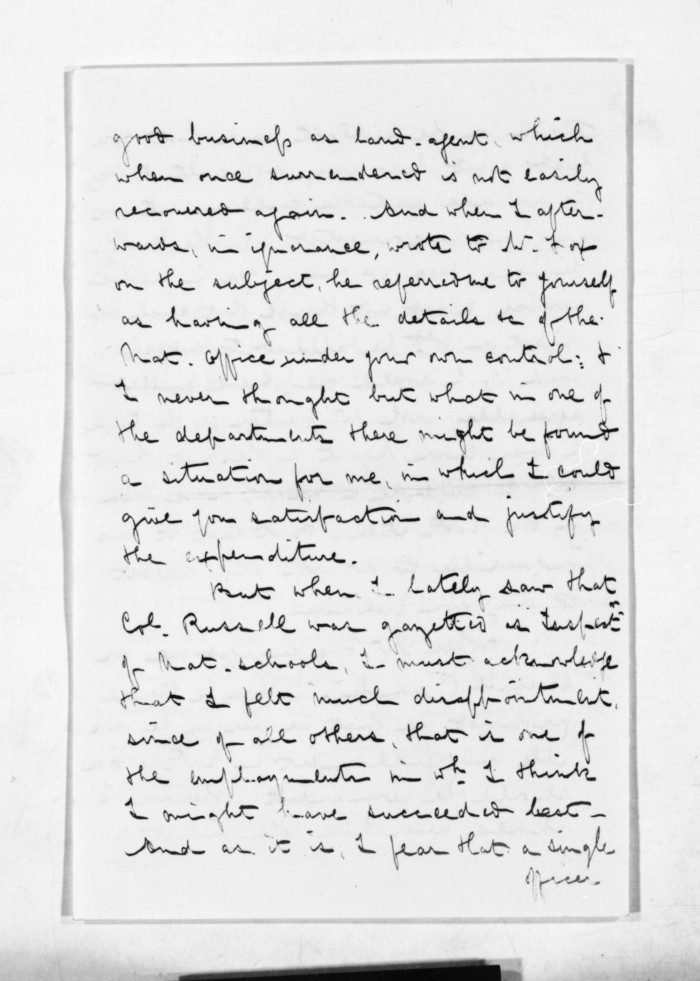 good business as land-agent, which
when once surrendered is not easily
recovered again. And when I after-
wards, in ignorance, wrote to Mr. Fox
on the subject, he referred me to yourself
as having all the details &c of the
Nat. Office under your own control: &
I never thought but what in one of
the departments there might be found
a situation for me, in which I could
give you satisfaction and justify
the expenditure.
But when I lately saw that
Col. Russell was gazetted as Inspectr
of Nat. schools, I must acknowledge
that I felt much disappointment,
since of all others, that is one of
the employments in wh. I think
I might have succeeded best—
And as it is, I fear that a single
officer